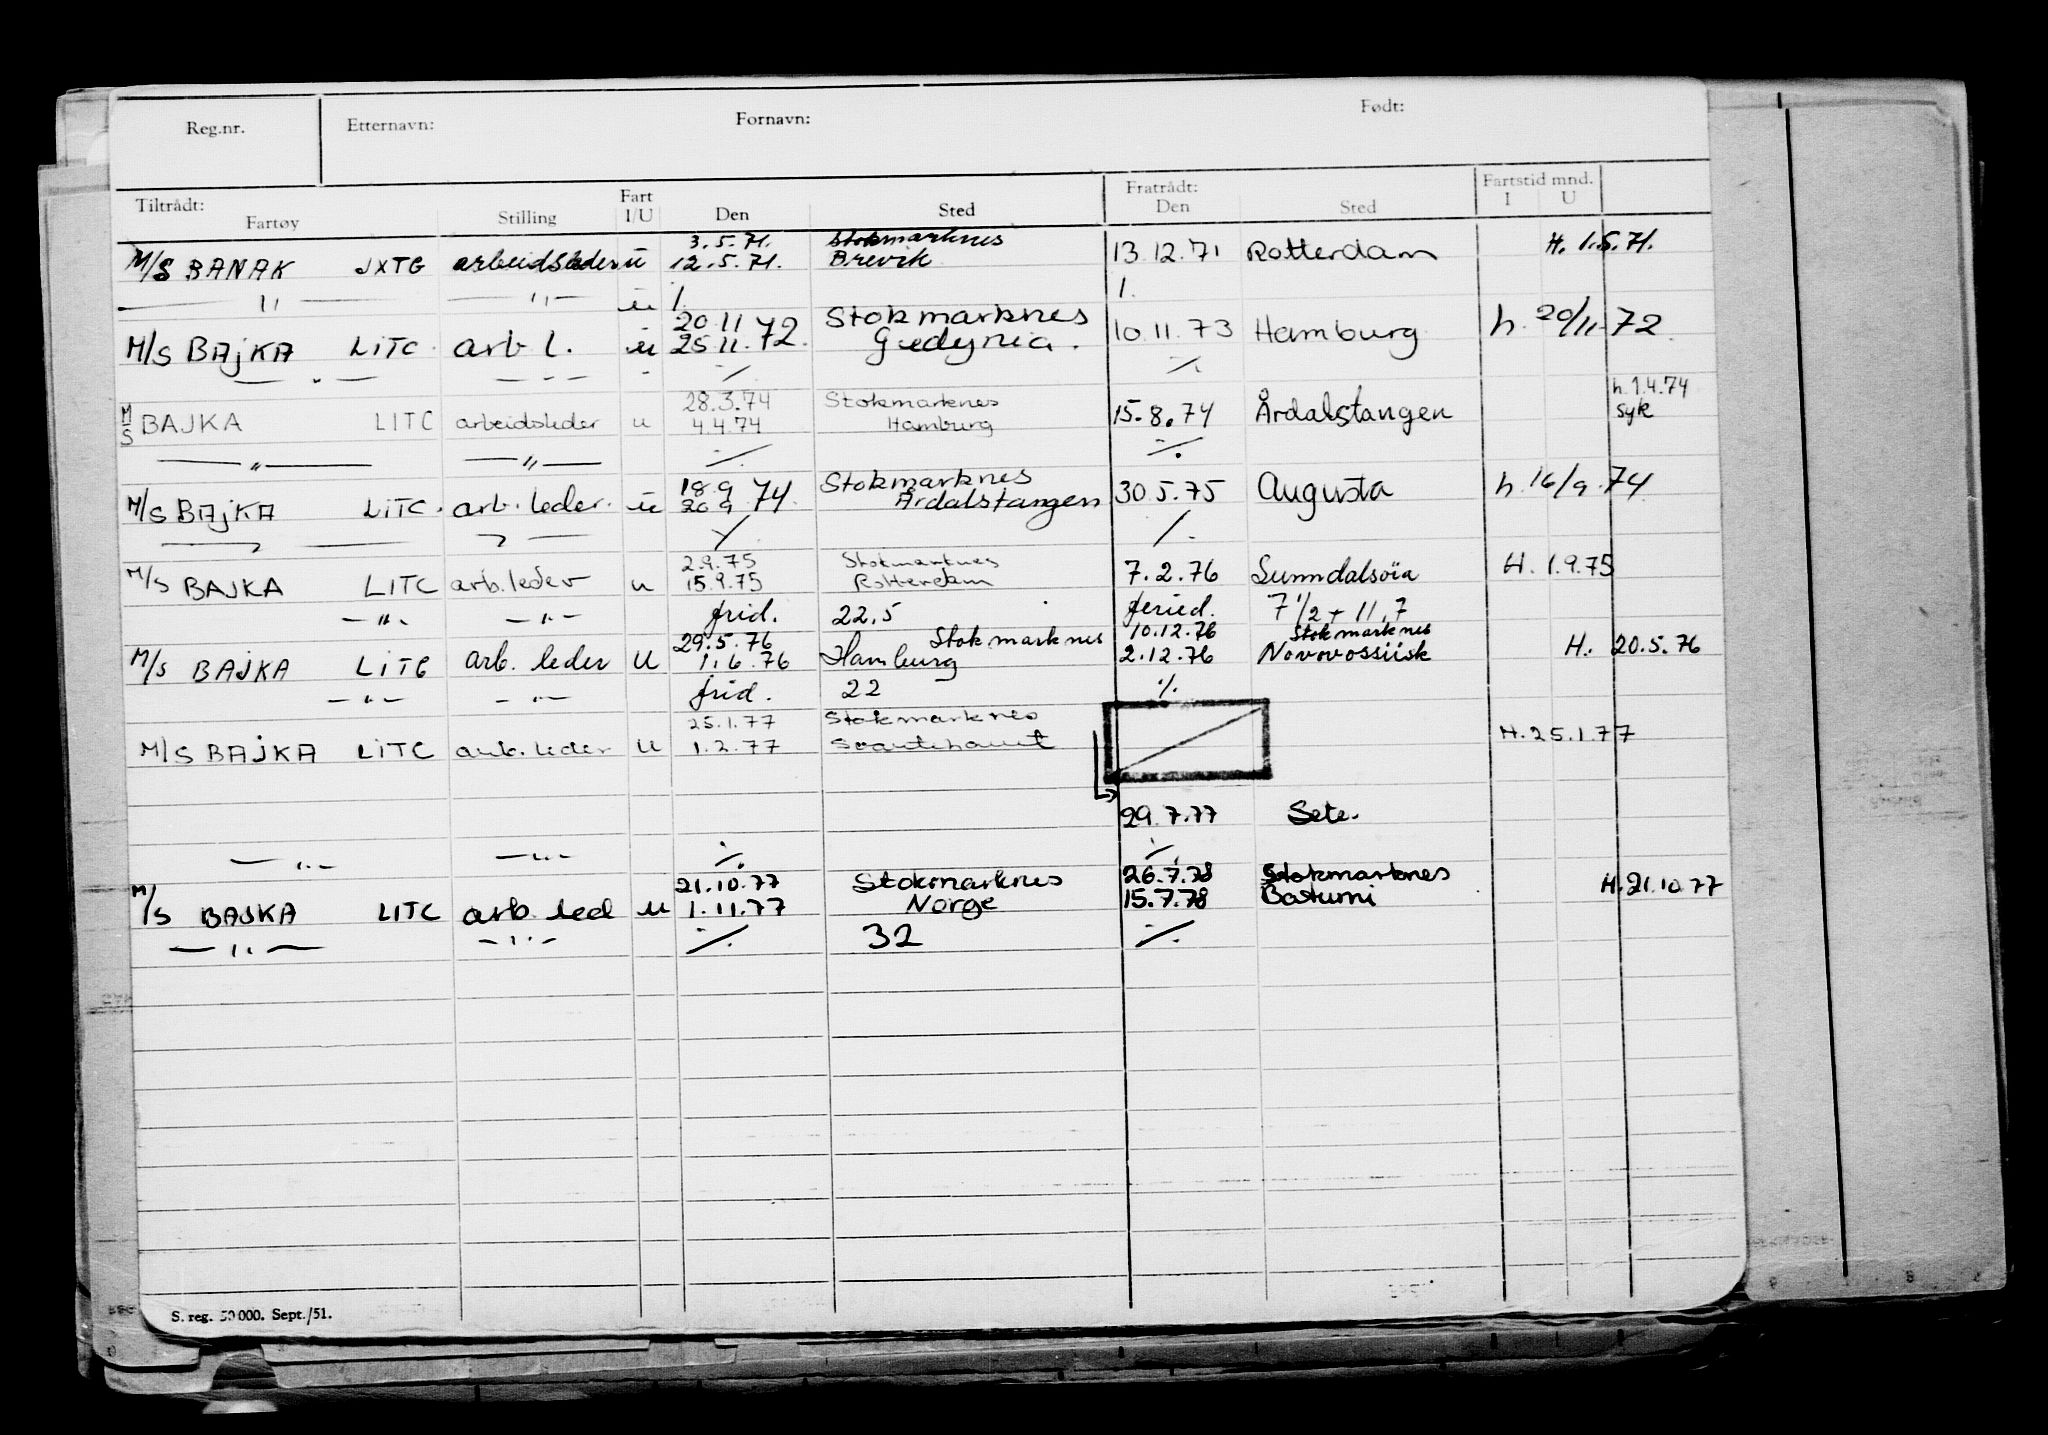 Reg.nr. Etternavn: Fornavn: Født:
Tiltrådt: Fart Fratrådt: Fartstid mnd.
Fartøy Stilling I/U Den Sted Den Sted I U
3.5.71. Stokmarknes
M/S BANAK JXTG arbeidsleder u 12.5.71. Brevik 13.12.71 Rotterdam H. 1.5.71.
— " — — " — u 1. 1.
20.11 72. Stokmarknes
M/S BAJKA LITC. arb l. u 25.11. Gedynia. 10.11.73 Hamburg h. 20/11. 72.
— " — — " — " ./. ./.
28.3.74 Stokmarknes h. 1.4.74
M/S BAJKA LITC arbeidsleder u 4.4.74 Hamburg 15.8.74 Årdalstangen syk
— " — — " — ./. ./.
18.9 74. Stokmarknes
M/S BAJKA LITC. arb. leder. u 20.9 Årdalstangen 30.5.75 Augusta h. 16/9.74
— " — — " — ./. ./.
2.9.75 Stokmarknes
M/S BAJKA LITC arb.leder u 15.9.75 Rotterdam 7.2.76 Sunndalsöia H. 1.9.75
— " — — " — frid. 22,5 feried. 7 1/2 + 11,7
29.5.76 Stokmarknes 10.12.76 Stokmarknes
M/S BAJKA LITC arb. leder U 1.6.76 Hamburg 2.12.76 Novovossiisk H. 20.5.76
— " — — " — frid. 22 ./.
25.1.77 Stokmarknes
M/S BAJKA LITC arb. leder U 1.2.77 H.25.1.77
29.7.77 Sete.
— " — — " — ./. ./.
21.10.77 Stokmarknes 26.7.78 Stokmarknes
M/S BAJKA LITC arb. led u 1.11.77 Norge 15.7.78 Batumi H.21.10.77
— " — — " — ./. 32 ./.
S. reg. 50 000. Sept./51.